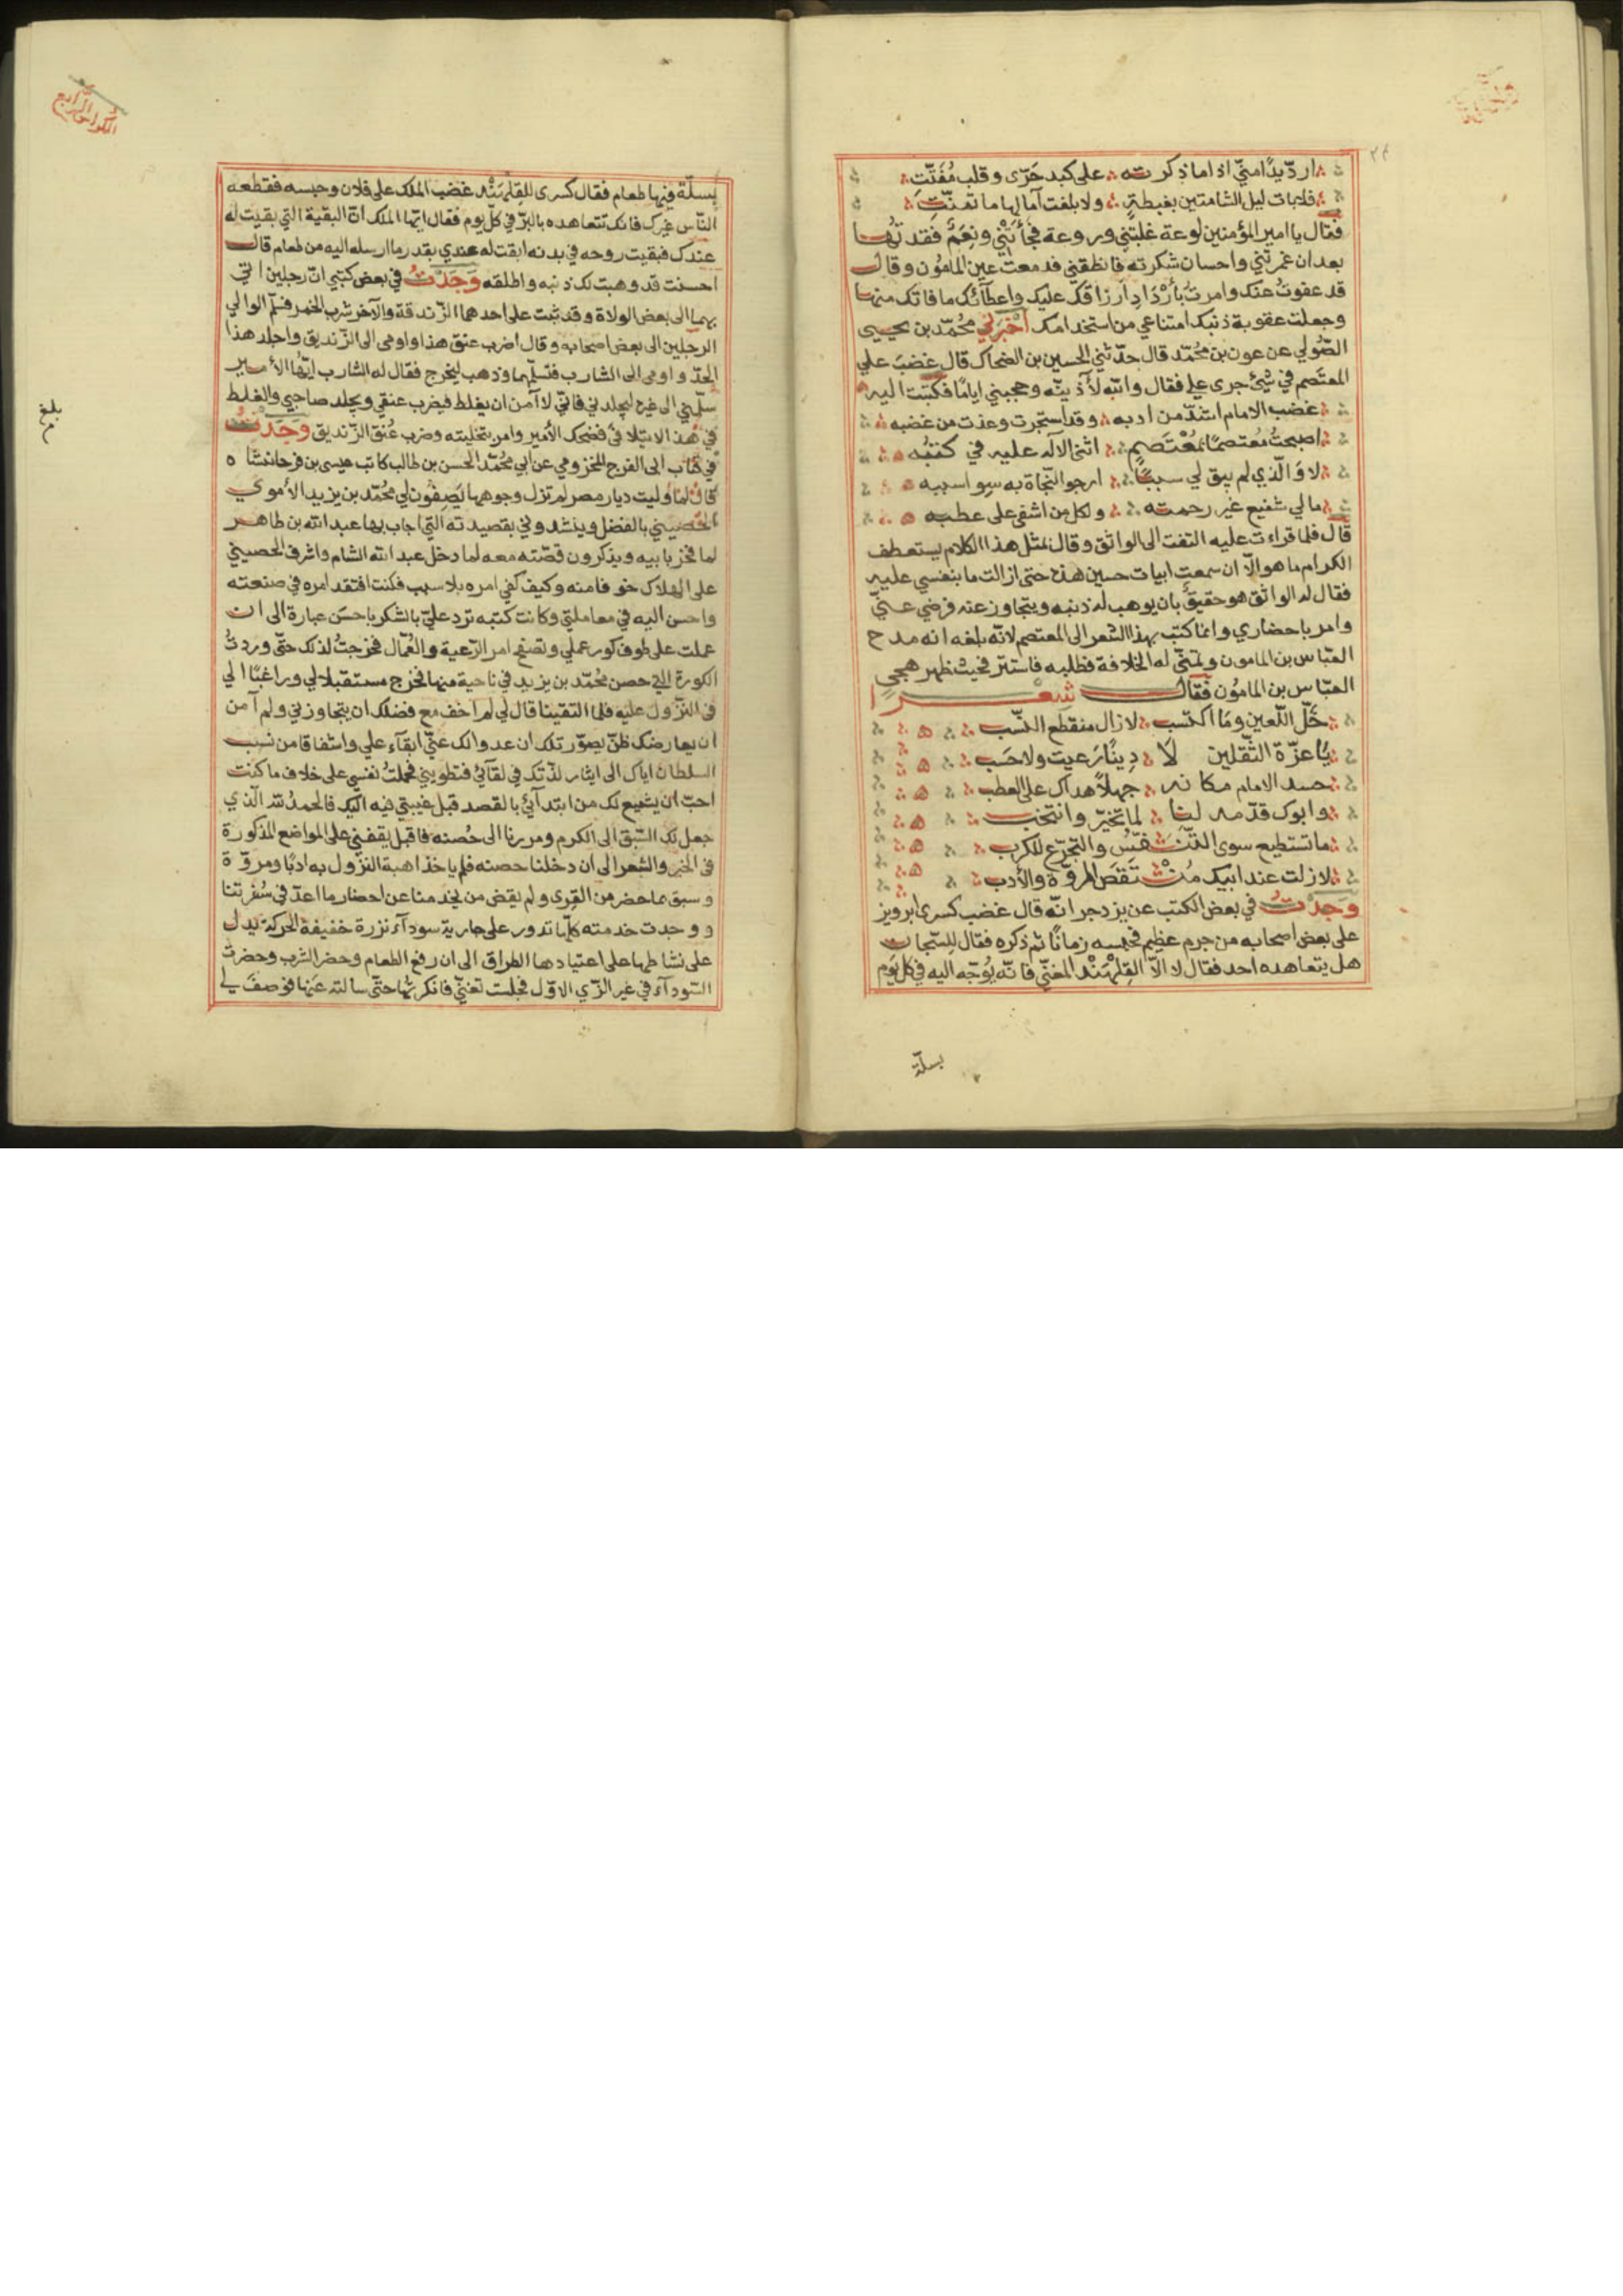 اردّ يدًا منّي اذا ماذكرته على كبد حَرّى وقلب مُفَتّتِ
فلابات ليل الشامتين بغبطةٍ ولا بلغت آمالها ما تمنّتِ
فقال يا امير المؤمنين لوعة غلبتني وروعة فجأتني ونِعَمٌ فقدتُها
بعد ان غمرتني واحسان شكرته فانطقني فدمعت عين المامون وقال
قد عفوتُ عنك وامرت بأدرار ارزاقك عليك واعطآئك ما فاتك منها
وجعلت عقوبة ذنبك امتناعي من استخدامك اخبرني محُمّد بن يحيى
الصُّولي عن عون بن محُمّد قال حدّثني الحسين بن الضحاك قال غضبَ علي
المعتصم في شئ جرى علي فقال والله لأدبنّه وحجبني ايامًا فكتبت اليه
غضب الامام اشدّ من ادبه وقد استجرت وعذت من غضبه
اصبحتُ مُعتصمًا بمُعْتَصمٍ اثنى الاله عليه في كتبُه
لا وَالّذي لم يبق لي سببًا ارجو النّجاة به سوا سببه
مالي شفيع غير رحمته ولكل من اشفى على عطبه
قال فلما قراءت عليه التفت الى الواثق وقال لمثل هذا الكلام يستعطف
الكرام ما هو الّا ان سمعت ابيات حسين هذه حتى ازالت ما بنفسي عليه
فقال له الواثق هو حقيقٌ بان يوهب له ذنبه ويتجاوز عنه فرضي عنّي
وامر باحضاري وانما كتب بهذا الشعر الى المعتصم لانّه بلغه انه مدح
العبّاس بن المامون وتمنّى له الخلافة فطلبه فاستتر فحيث ظهر هجي
العبّاس بن المامُون فقال شعرا
خَلّ اللّعين ومَا اكتسب لازال منقطع النسّب
يَا عرّة الثّقلين لا دِينًا رعيت ولا حَسَب
حسد الامام مكانه جهلًا هداك على العطب
وابوك قدّمه لنا لما تخيّر وانتخب
ما تستطيع سوى التّنَفّسُ والتجرّع للكرب
لازلت عند ابيك مُنْتَقَصَ المروّة والأدب
وَجدْتُ في بعض الكتب عن يزدجر انّه قال غضب كسرى ابرويز
على بعض اصحابه من جرم عظيم فحبسه زمانًا ثم ذكره فقال للسّجان
هل يتعاهده احد فقال لا الّا القِلهْبَنْد المغنّي فانّه يُوّجّه اليه في كل يَوم
بسلّة
بسلّة فيها طعام فقال كسرى للقِلهْبَنْد غضب الملك على فلان وحبسه فقطعه
النّاس غيرك فانك تتعاهده بالبرّ في كل يوم فقال ايّها الملك انّ البقية التي بقيت له
عندك فبقيت روحه في بدنه ابقت له عندي بقدر ما ارسله اليه من طعام قال
احسنت قد وهبت لك ذنبه واطلقه وَجَدْتُ في بعض كتبي انّ رجلين اتي
بهما الى بعض الولاة وقد ثبت على احدهما الزّندقة والآخر شرب الخمر فسلّم الوالي
الرجلين الى بعض اصحابه وقال اضرب عنق هذا واومى الى الزّنديق واجلد هذا
الحدّ واومى الى الشارب فتسلّمهما وذهب ليخرج فقال له الشارب ايّها الأمير
سلّمني الى غيره ليجلدني فانّي لا آمن ان يغلط فيضرب عنقي ويجلد صاحبي والغلط
في هذا لا يتلافى فضحك الأمير وامر بتخليته وضرب عُنق الزّنديق وَجَدْتُ
في كتاب ابى الفرج المخزومي عن ابي محُمّد الحسن بن طالب كاتب عيسى بن فرخانشاه
قال لما وليت ديار مصر لم تزل وجوهها يَصِفُون لي محُمّد بن يزيد الأموي
الحُصيني بالفضل وينشدوني بقصيدته التي اجاب بها عبد الله بن طاهر
لما فخر بابيه ويذكرون قصّته معه لما دخل عبد الله الشام واشرف الحصيني
على الهلاك خو فا منه وكيف كفي امره بلا سبب فكنت افتقد امره في صنعته
واحسن اليه في معاملتي وكانت كتبه ترد عليّ بالشكر باحسَن عبارة الى ان
عملت على طوف كور عملي وتصفح امر الرّعية والعُمّال فخرجتُ لذلك حتّى وردتُ
الكورة التي حصن محُمّد بن يزيد في ناحية منها فخرج مستقبلا لي وراغبًا الي
في النّزول عليه فلما التقينا قال لي لم اخف مع فضلك ان يتجاوزني ولم آمن
ان يعارضك ظنّ يصوّر تلك ان عدوالك عنّي ابقآء علي واشفاقا من نسب
السلطان اياك الى ايثار لذّتك في لقآئي فتطويني فحملتُ نفسي على خلاف ما كنت
احبّ ان يشيع لك من ابتدآئي بالقصد قبل غيبتي فيه اليك فالحمدُ لله الّذي
جعل لك السّبق الى الكرم ومررنا الى حُصنه فاقبل يقفني على المواضع المذكورة
في الخبر والشعر الى ان دخلنا حصنه فلم ياخذ اهبة النزول به ادبًا ومروّة
وسبق ما حضر من القِرى ولم يقض من يخدمنا عن احضار ما اعدّ في سُفرتنا
ووجدت خدمته كلّها تدور على جارية سودآء نزرة خفيفة الحركة يدل
على نشاطها على اعتيادها الطراق الى ان رفع الطعام وحضر الشرب وحضرتْ
السّودآء في غير الزّي الاوّل فجلست تغنّي فانكرتُها حتّى سالته عَنها فوصفَ لي
بلغ
الكراس الرابع